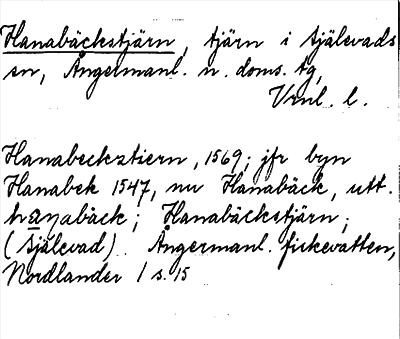 Hanabäckstjärn, tjärn i Själevads
sn, Ångermanl. n. doms. tg,
Vrnl. l.
Hanabeckztiern, 1569; jfr byn
Hanabek 1547, nu Hanabäck, utt.
hanabäck; Hanabäckstjärn;
(Själevad). Ångermanl. fiskevatten,
Nordlander 1 s. 15